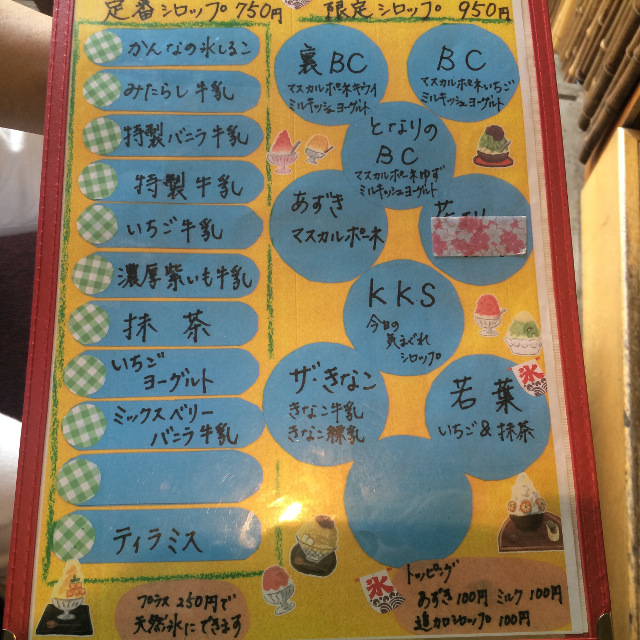 定番シロップ 750円
かんなの氷しるこ
みたらし牛乳
特製バニラ牛乳
特製牛乳
いちご牛乳
濃厚紫いも牛乳
抹茶
いちご
ヨーグルト
ミックスベリー
バニラ牛乳
ティラミス
プラス250円で
天然氷にできます
限定シロップ 950円
裏BC
マスカルポーネキウイ
ミルキッシュヨーグルト
BC
マスカルポーネいちご
ミルキッシュヨーグルト
となりの
BC
マスカルポーネゆず
ミルキッシュヨーグルト
あずき
マスカルポーネ
KKS
今日の
気まぐれ
シロップ
ザ・きなこ
きなこ牛乳
きなこ練乳
若葉
いちご&抹茶
氷
氷
トッピング
あずき100円 ミルク100円
追加シロップ 100円